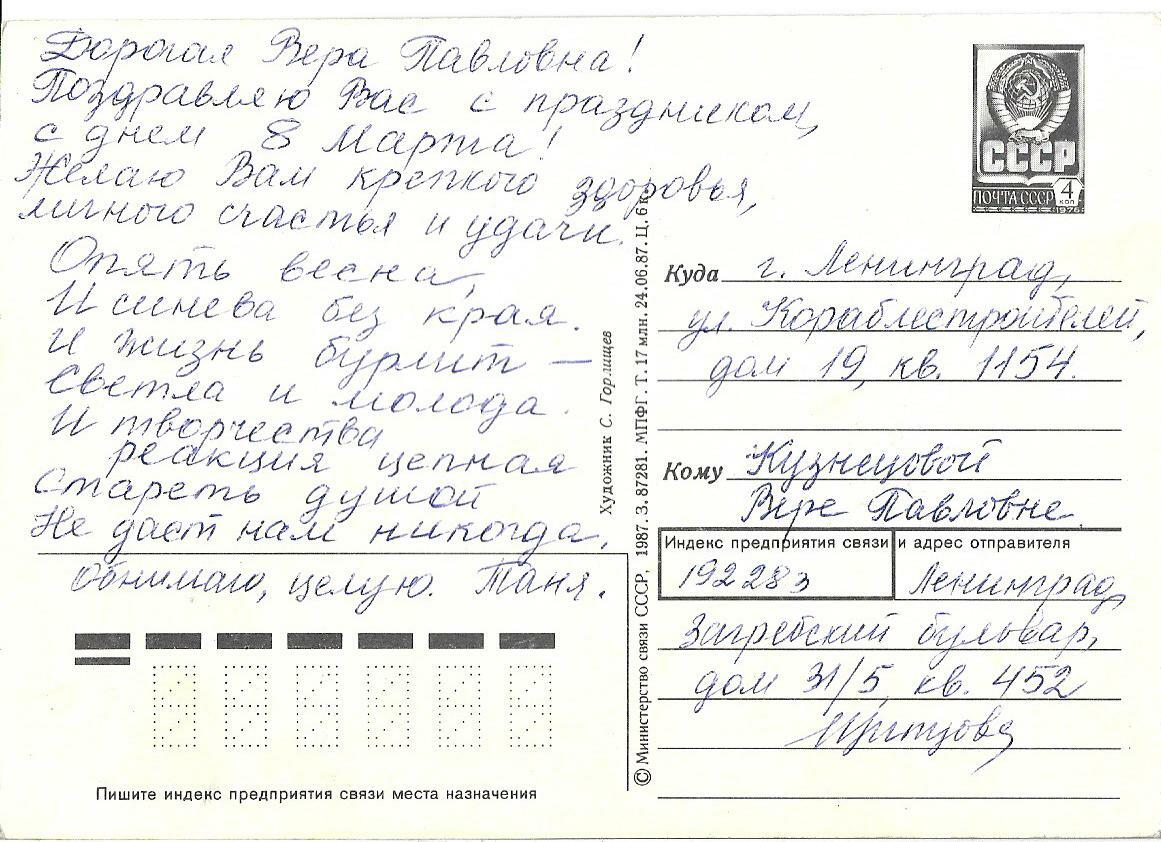 Дорогая Вера Павловна!
Поздравляю Вас с праздником,
с днем 8 Марта!
Желаю Вам крепкого здоровья,
личного счастья и удачи.
Опять весна,
И синева без края.
И жизнь бурлит —
Светла и молода.
И творчества
реакция цепная
Стареть душой
Не даст нам никогда.
Обнимаю, целую. Таня.
Пишите индекс предприятия связи места назначения
Художник С. Горлищев
© Министерство связи СССР, 1987. З. 87281. МПФГ. Т. 17 млн. 24.06.87. Ц. 6 к.
СССР
ПОЧТА СССР 4 коп
1976
Куда г. Ленинград,
ул. Кораблестроителей,
дом 19, кв. 1154.
Кому Кузнецовой
Вере Павловне.
Индекс предприятия связи и адрес отправителя
192283 Ленинград,
Загребский бульвар,
дом 31/5, кв. 452